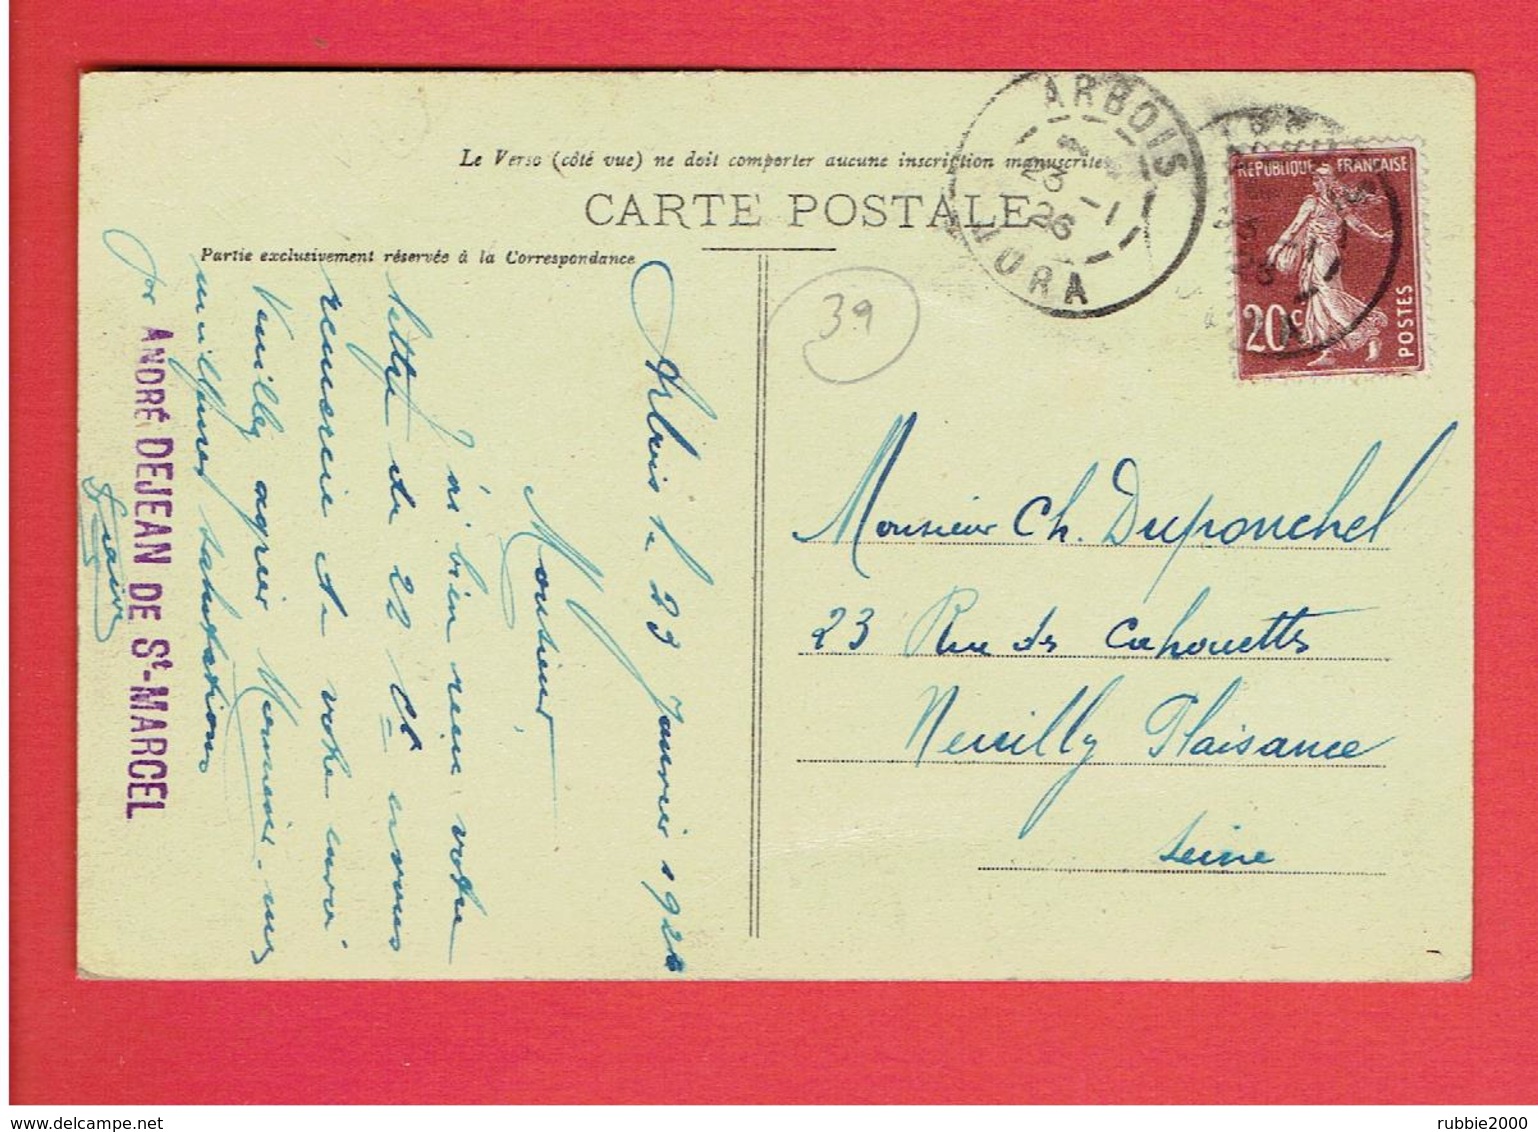 Le Verso (côté vue) ne doit comporter aucune inscription manuscrite
CARTE POSTALE
Partie exclusivement réservée à la Correspondance
ARBOIS
23 -1
26
JURA
RÉPUBLIQUE FRANÇAISE
20c
POSTES
39
Arbois le 23 Janvier 1926
Monsieur,
J'ai bien reçu votre
lettre du 22 Ct et vous
remercie de votre envoi
Veuillez agréer Monsieur, mes
meilleures salutations
por ANDRÉ DEJEAN DE St-MARCEL
Monsieur Ch. Duponchel
23 Rue des Cahouettes
Neuilly Plaisance
Seine
delcampe.net
rubbie2000